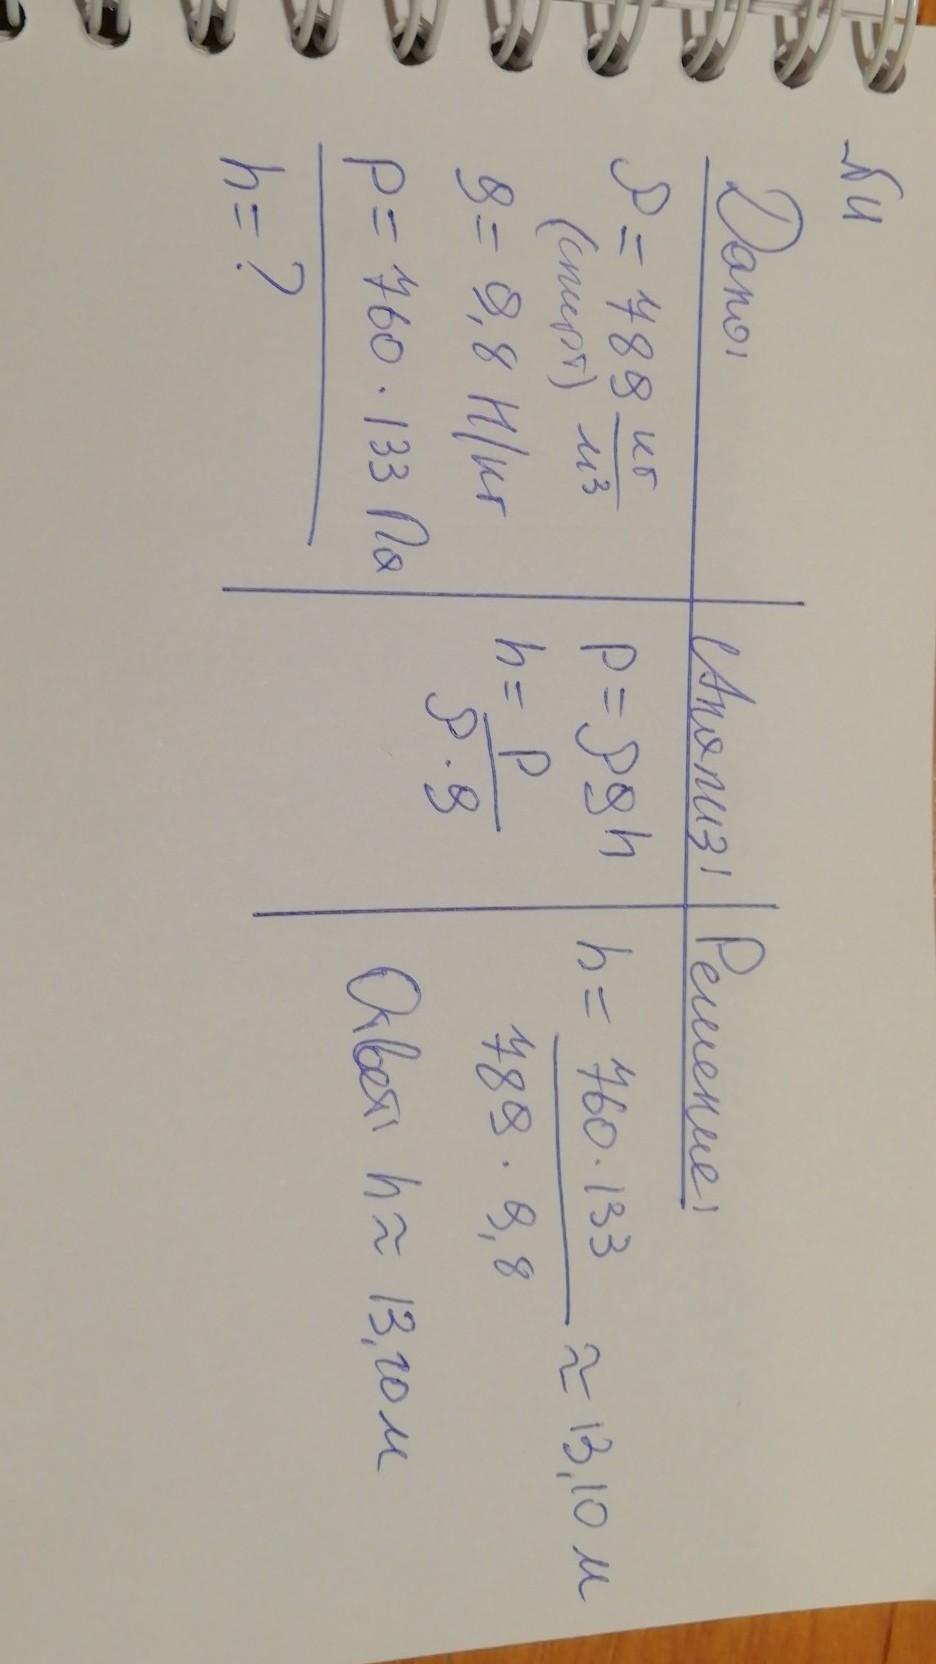 №4
Дано:
ρ = 789 кг/м3
(спирт)
g = 9,8 Н/кг
P = 760 · 133 Па
h = ?
Анализ:
P = ρgh
h = P / ρ · g
Решение:
h = 760 · 133 / 789 · 9,8 ≈ 13,10 м
Ответ: h ≈ 13,10 м